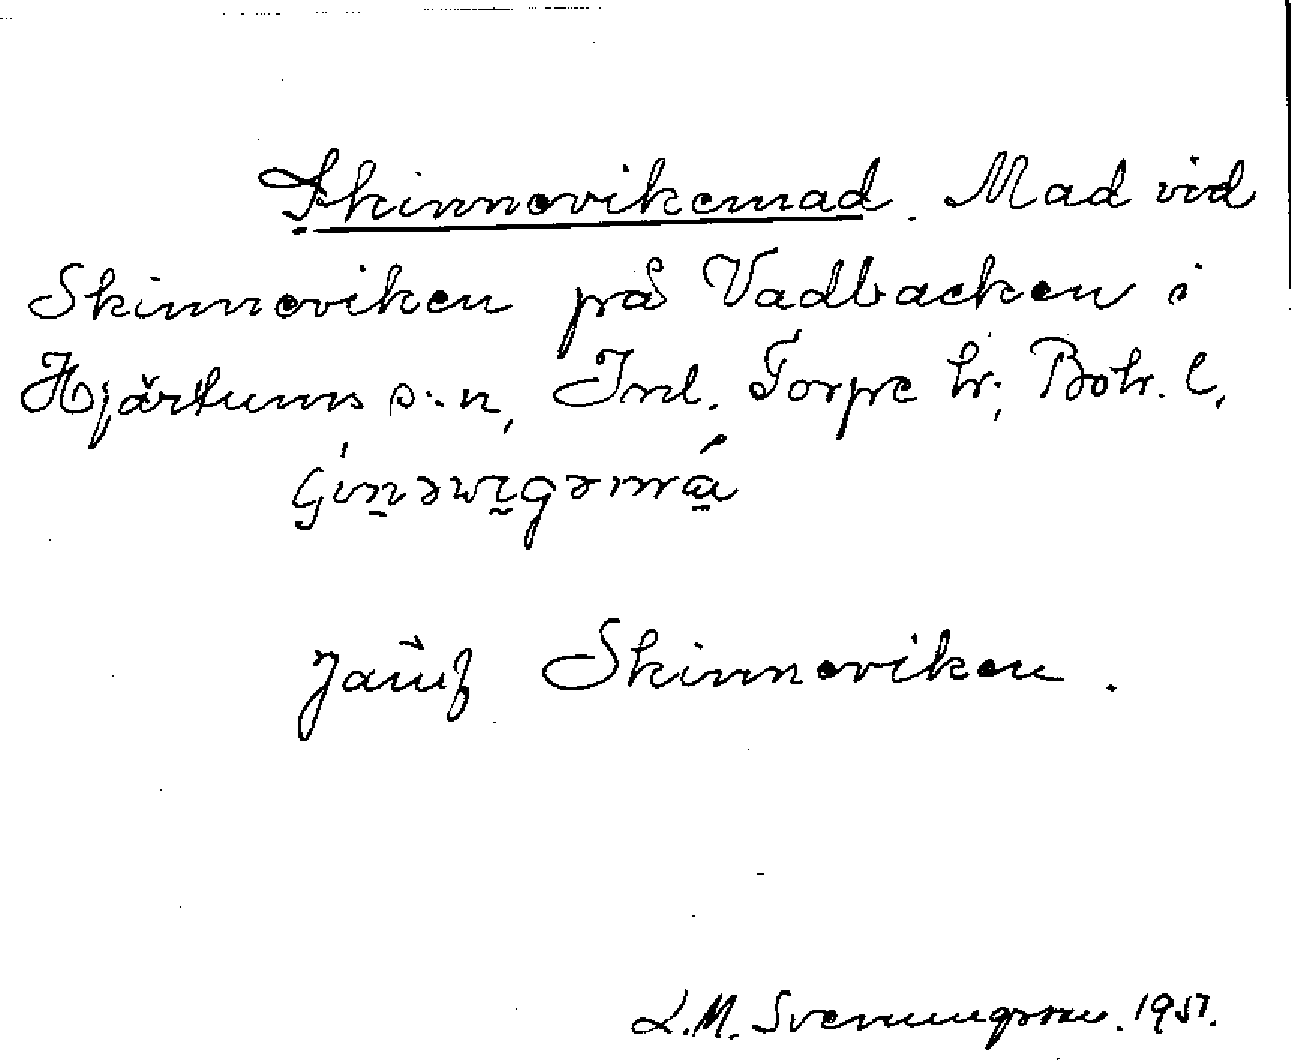 Skinnevikemad. Mad vid
Skinneviken på Vadbacken i
Hjärtums s:n, Inl. Torpe hr, Boh. l.
Jämf Skinneviken.
L.M. Svenungsson. 1957.